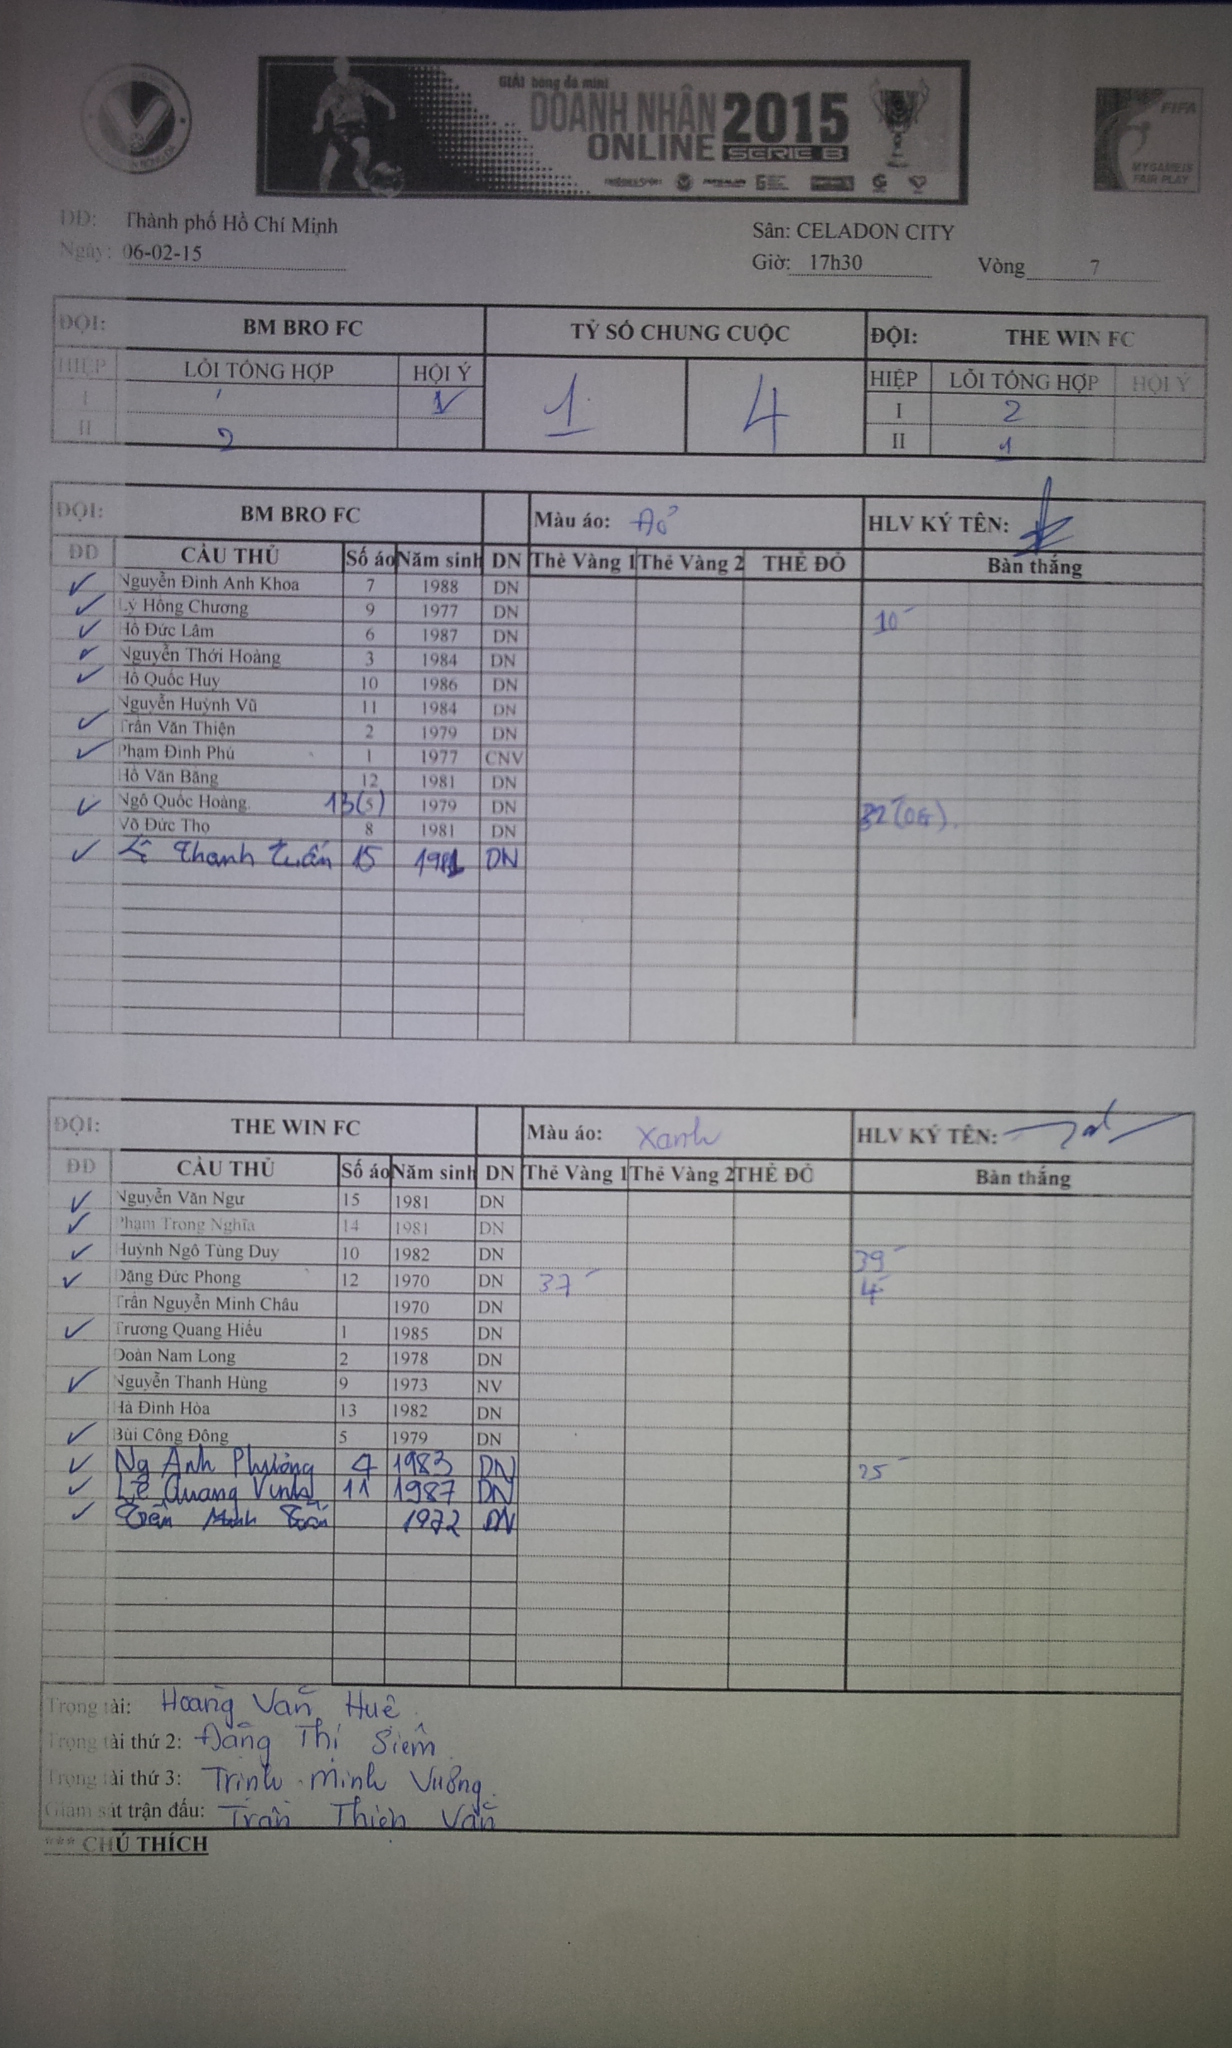 GIẢI bóng đá mini
DOANH NHÂN 2015
ONLINE SERIE B
FIFA
MY GAME IS
FAIR PLAY
DD: Thành phố Hồ Chí Minh
Sân: CELADON CITY
Ngày: 06-02-15
Giờ: 17h30 Vòng 7
ĐỘI: BM BRO FC TỶ SỐ CHUNG CUỘC ĐỘI: THE WIN FC
HIỆP LỖI TỔNG HỢP HỘI Ý 1 4 HIỆP LỖI TỔNG HỢP HỘI Ý
I 1 I 2
II 2 II 1
ĐỘI: BM BRO FC Màu áo: Đỏ HLV KÝ TÊN:
DD CẦU THỦ Số áo Năm sinh DN Thẻ Vàng 1 Thẻ Vàng 2 THẺ ĐỎ Bàn thắng
Nguyễn Đình Anh Khoa 7 1988 DN
Lý Hồng Chương 9 1977 DN 10'
Hồ Đức Lâm 6 1987 DN
Nguyễn Thới Hoàng 3 1984 DN
Hồ Quốc Huy 10 1986 DN
Nguyễn Huỳnh Vũ 11 1984 DN
Trần Văn Thiện 2 1979 DN
Phạm Đình Phú 1 1977 CNV
Hồ Văn Bằng 12 1981 DN
Ngô Quốc Hoàng 13(5) 1979 DN 32'(OG).
Võ Đức Thọ 8 1981 DN
Lê Thanh Tuấn 15 1981 DN
ĐỘI: THE WIN FC Màu áo: Xanh HLV KÝ TÊN:
DD CẦU THỦ Số áo Năm sinh DN Thẻ Vàng 1 Thẻ Vàng 2 THẺ ĐỎ Bàn thắng
Nguyễn Văn Ngư 15 1981 DN
Phạm Trọng Nghĩa 14 1981 DN
Huỳnh Ngô Tùng Duy 10 1982 DN 39'
Đặng Đức Phong 12 1970 DN 37' 4'
Trần Nguyễn Minh Châu 1970 DN
Trương Quang Hiếu 1 1985 DN
Đoàn Nam Long 2 1978 DN
Nguyễn Thanh Hùng 9 1973 NV
Hà Đình Hòa 13 1982 DN
Bùi Công Đông 5 1979 DN
Ng Anh Phương 4 1983 DN 25'
Lê Quang Vinh 11 1987 DN
Trần Minh 1972 DN
Trọng tài: Hoàng Văn Huê
Trọng tài thứ 2: Đặng Thị Siêm
Trọng tài thứ 3: Trịnh Minh Vương
Giám sát trận đấu: Trần Thiện Văn
*** CHÚ THÍCH